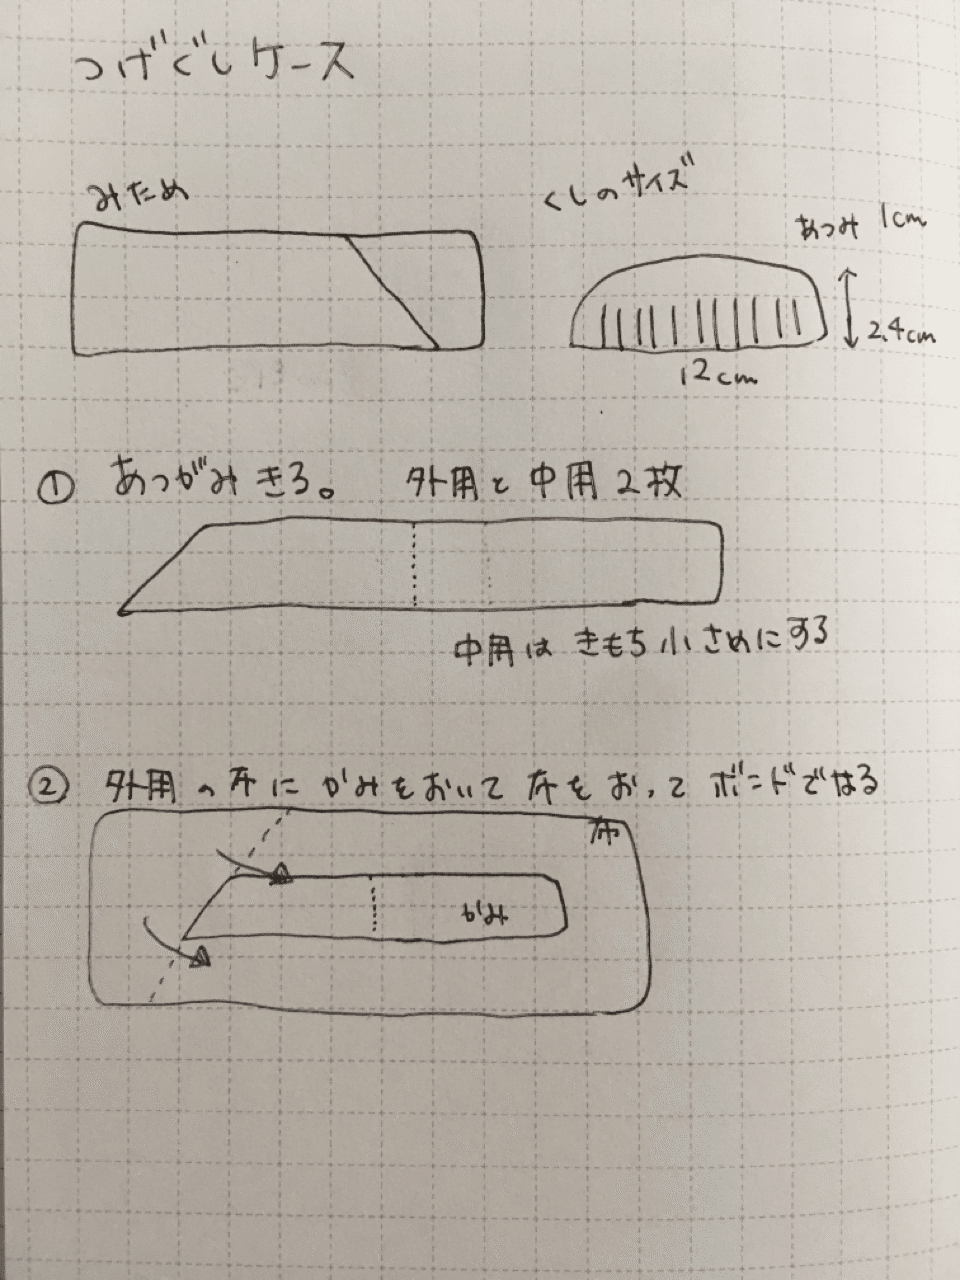 つげぐしケース
みため
くしのサイズ
あつみ 1cm
2.4cm
12cm
① あつがみきる。 外用と中用2枚
中用は きもち小さめにする
② 外用の布にがみをおいて布をおってボンドではる
布
がみ